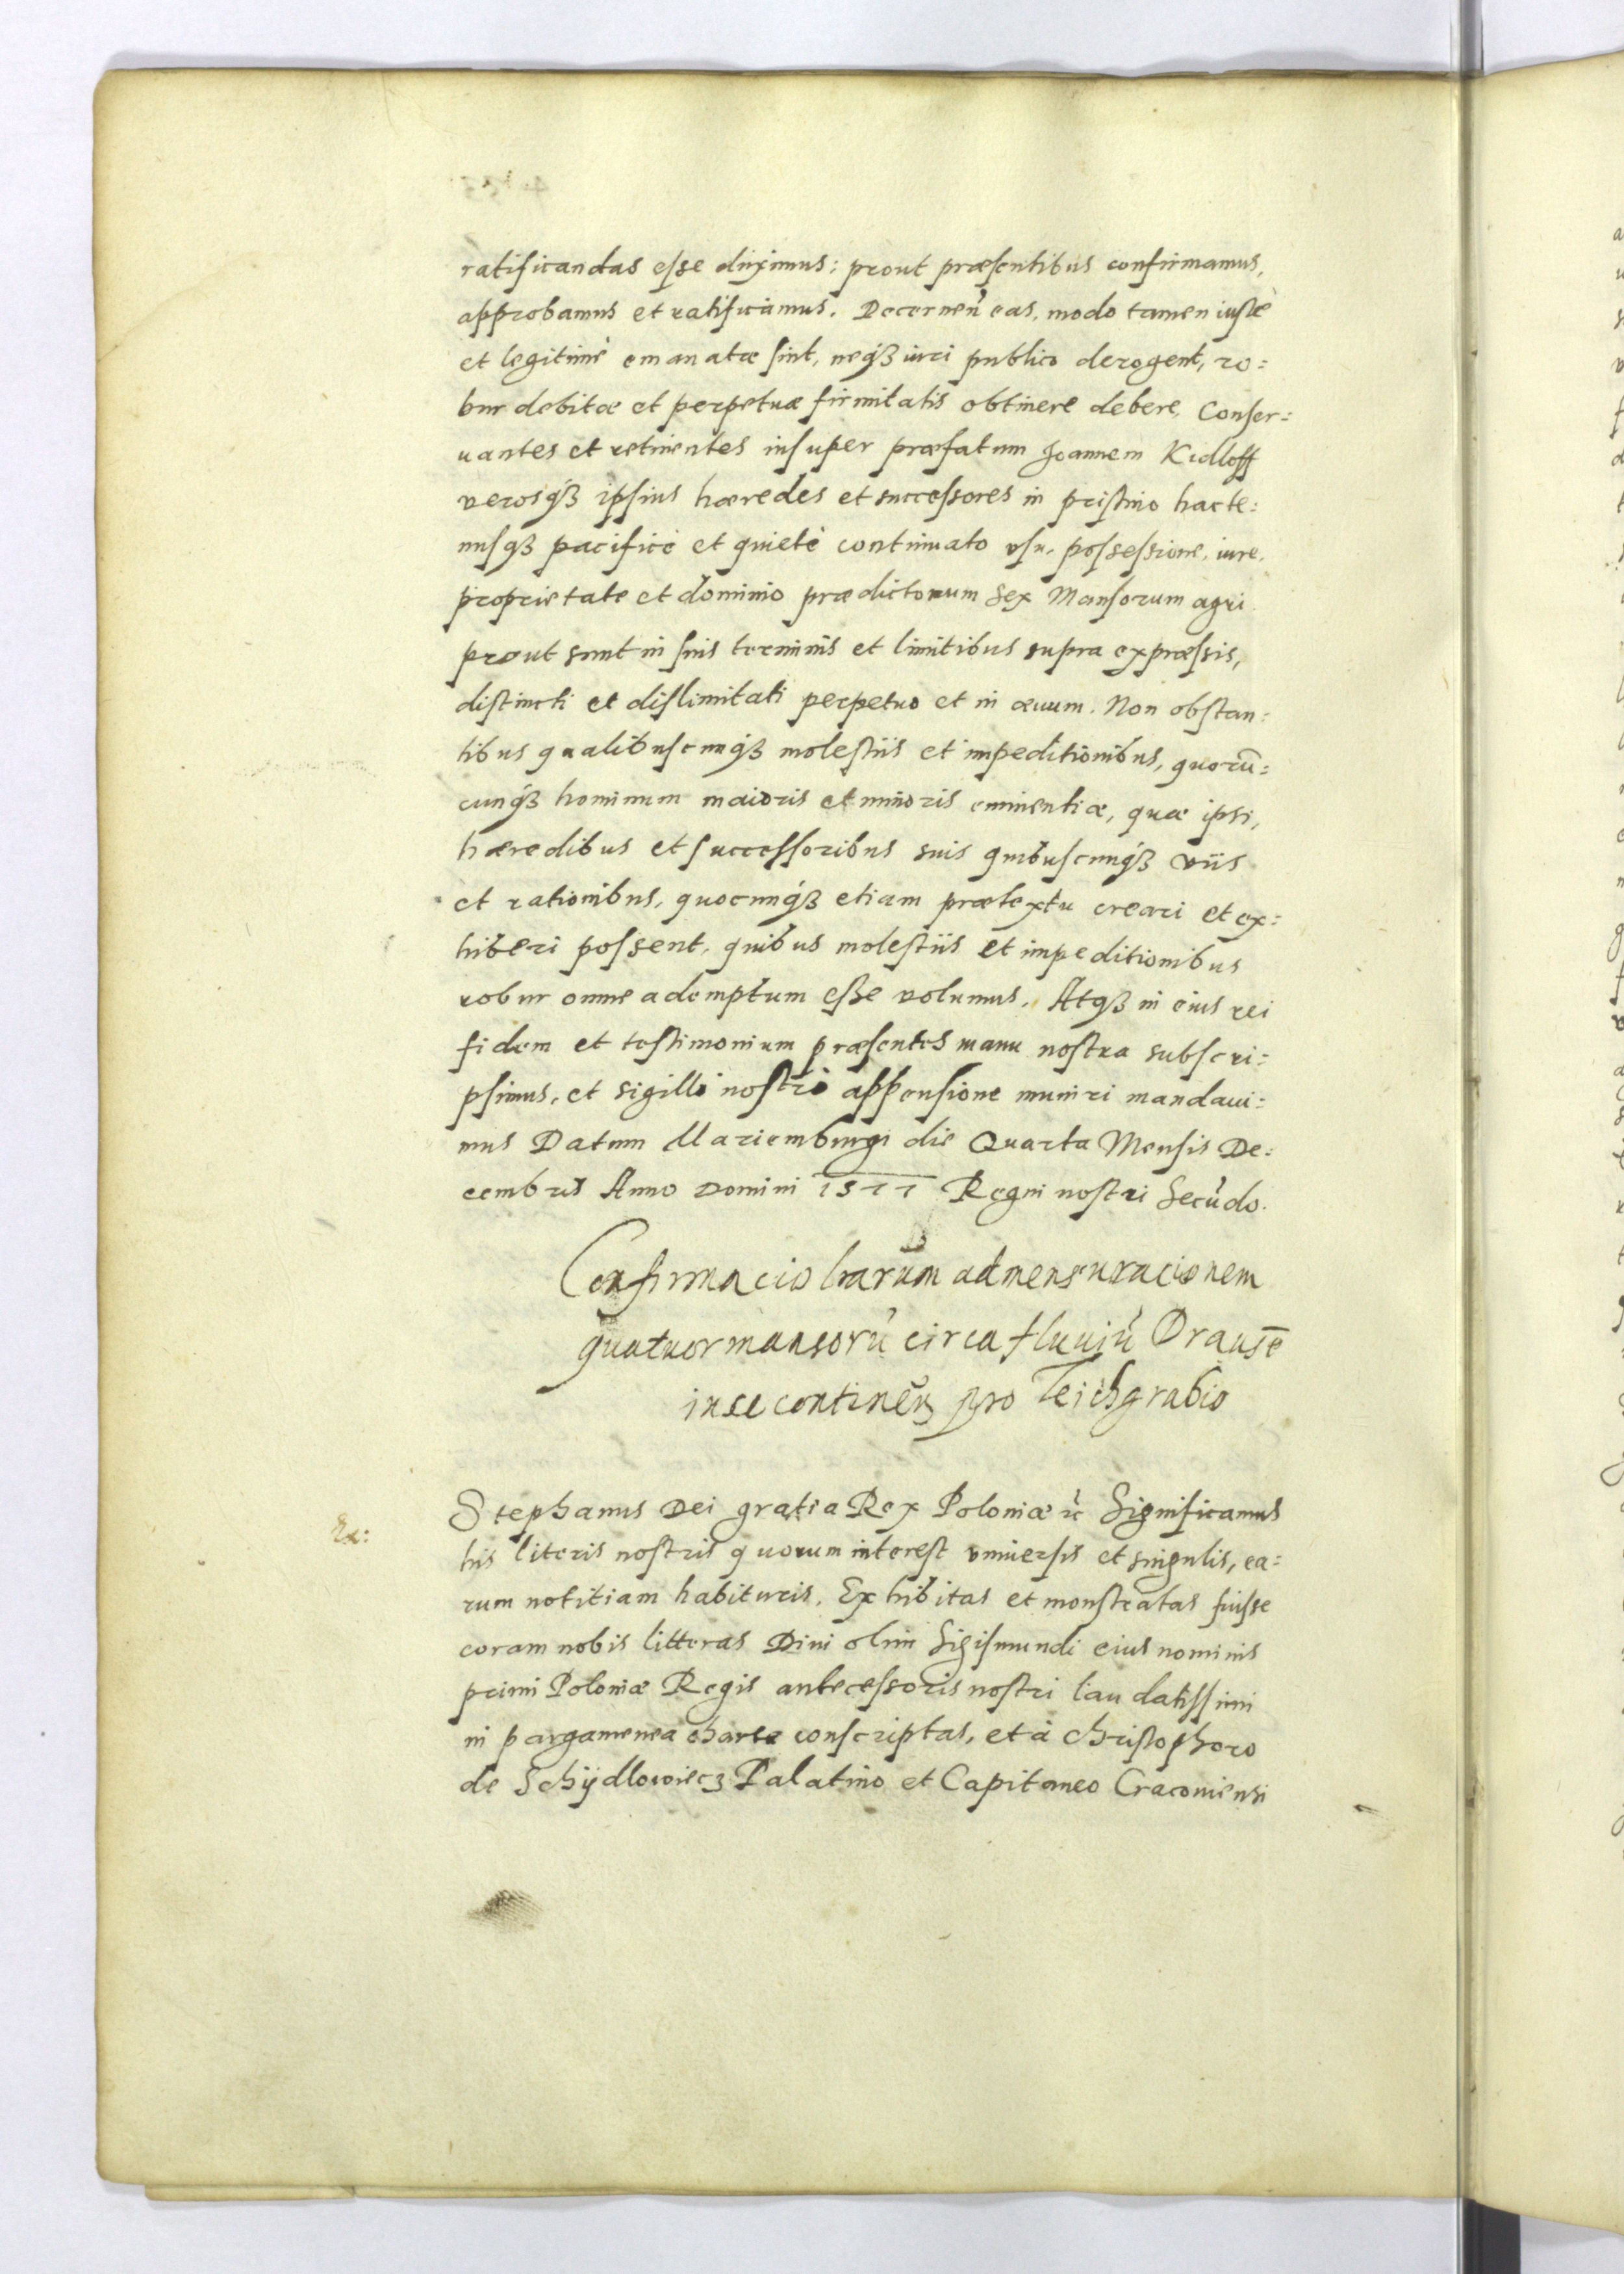 ratificandas esse duximus: prout præsentibus confirmamus,
approbamus et ratificamus. Decernen̄ eas, modo tamen iustè
et legitimè emanatæ sint, neq́ꝫ iuri publico derogent, ro=
bur debitæ et perpetuæ firmitatis obtinere debere, Conser=
uantes et retinentes insuper præfatum Joannem Kidloff
verosq́ꝫ ipsius hæredes et successores in pristino hacte=
nusqꝫ pacificè et quietè continuato vsu, possessione, iure,
proprietate et dominio prædictorum Sex Mansorum agri
prout sunt in suis terminis et limitibus supra expræssis,
distincti et dislimitati perpetuo et in æuum. Non obstan=
tibus qualibuscunq́ꝫ molestiis et impeditionibus, quorū=
cunq́ꝫ hominum maioris et minoris eminentiæ, quæ ipsi,
hæredibus et successoribus suis quibuscunq́ꝫ viis
et rationibus, quocunq́ꝫ etiam prætextu creari et ex=
hiberi possent, quibus molestiis et impeditionibus
robur omne ademptum esse volumus. Atqꝫ in eius rei
fidem et testimonium præsentes manu nostra subscri=
psimus, et sigilli nostri appensione muniri mandaui=
mus Datum Mariemburgi die Quarta Mensis De=
cembris Anno Domini 1577 Regni nostri Secūdo.
Confirmacio l̄rarum admensuracionem
quatuor mansorū circa fluuiū Drausē
in se continen̄ pro Teichgrabio
Ex:
Stephanus Dei gratia Rex Poloniæ ꝛc̄ Significamus
his literis nostris quorum interest vniuersis et singulis, ea=
rum notitiam habituris. Exhibitas et monstratas fuisse
coram nobis litteras Diui olim Sigismundi eius nominis
primi Poloniæ Regis antecessoris nostri laudatissimi
in pargamenea charta conscriptas, et à Christophoro
de Schÿdlowiecz Palatino et Capitaneo Cracouiensi